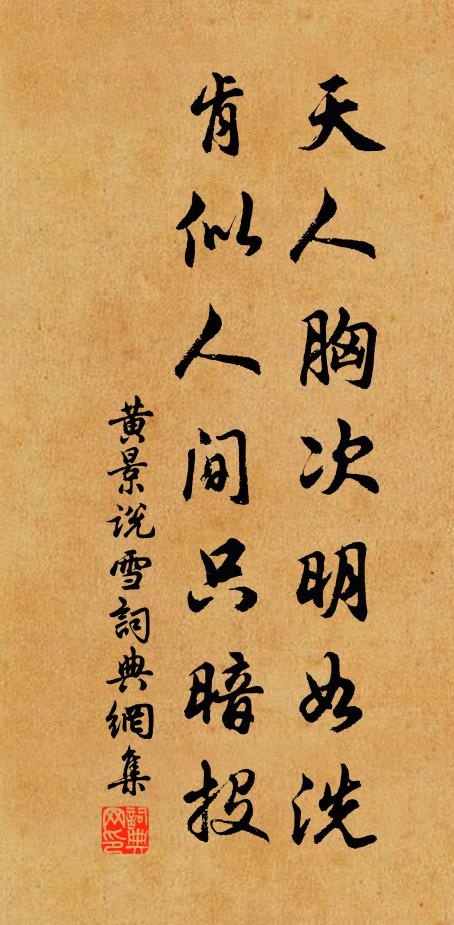 天人胸次明如洗
肯似人间只暗投
黄景说雪詞典網集
詞典網印